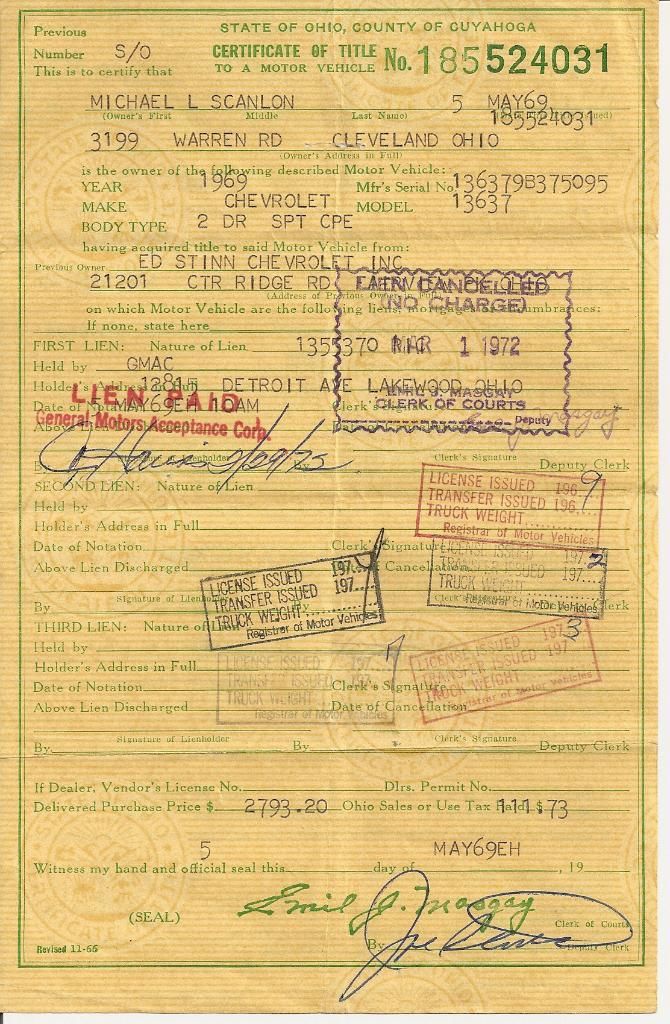 STATE OF OHIO, COUNTY OF CUYAHOGA
Previous
Number S/O
CERTIFICATE OF TITLE
TO A MOTOR VEHICLE No. 185524031
This is to certify that
MICHAEL L SCANLON 5 MAY69
(Owner's First Middle Last Name)
185524031
3199 WARREN RD CLEVELAND OHIO
(Owner's Address in Full)
is the owner of the following described Motor Vehicle:
YEAR 1969 Mfr's Serial No. 136379B375095
MAKE CHEVROLET MODEL 13637
BODY TYPE 2 DR SPT CPE
having acquired title to said Motor Vehicle from:
Previous Owner ED STINN CHEVROLET INC
21201 CTR RIDGE RD FAIRVIEW PK OHIO
(Address of Previous Owner in Full)
on which Motor Vehicle are the following liens, mortgages or encumbrances:
If none, state here
LIEN CANCELLED
(NO CHARGE)
MAR 1 1972
EMIL J. MASGAY
CLERK OF COURTS
Deputy
FIRST LIEN: Nature of Lien 1355370 RIC
Held by GMAC
Holder's Address in Full 12815 DETROIT AVE LAKEWOOD OHIO
Date of Notation 5MAY69EH 10AM Clerk's Signature
LIEN PAID
General Motors Acceptance Corp.
By
Clerk's Signature Deputy Clerk
SECOND LIEN: Nature of Lien
Held by
Holder's Address in Full
Date of Notation Clerk's Signature
Above Lien Discharged Date of Cancellation
By Signature of Lienholder
LICENSE ISSUED 1969
TRANSFER ISSUED 196
TRUCK WEIGHT
Registrar of Motor Vehicles
LICENSE ISSUED 1972
TRANSFER ISSUED 197
TRUCK WEIGHT
Registrar of Motor Vehicles
LICENSE ISSUED 197
TRANSFER ISSUED 197
TRUCK WEIGHT
Registrar of Motor Vehicles
THIRD LIEN: Nature of Lien
Held by
Holder's Address in Full
Date of Notation Clerk's Signature
Above Lien Discharged Date of Cancellation
LICENSE ISSUED 197
TRANSFER ISSUED 197
TRUCK WEIGHT
Registrar of Motor Vehicles
LICENSE ISSUED 1973
TRANSFER ISSUED 197
TRUCK WEIGHT
Registrar of Motor Vehicles
Signature of Lienholder Clerk's Signature
By By Deputy Clerk
If Dealer, Vendor's License No. Dlrs. Permit No.
Delivered Purchase Price $ 2793.20 Ohio Sales or Use Tax Paid, $ 111.73
5 MAY69EH
Witness my hand and official seal this day of , 19
(SEAL) Emil J. Masgay Clerk of Courts
By Deputy Clerk
Revised 11-66